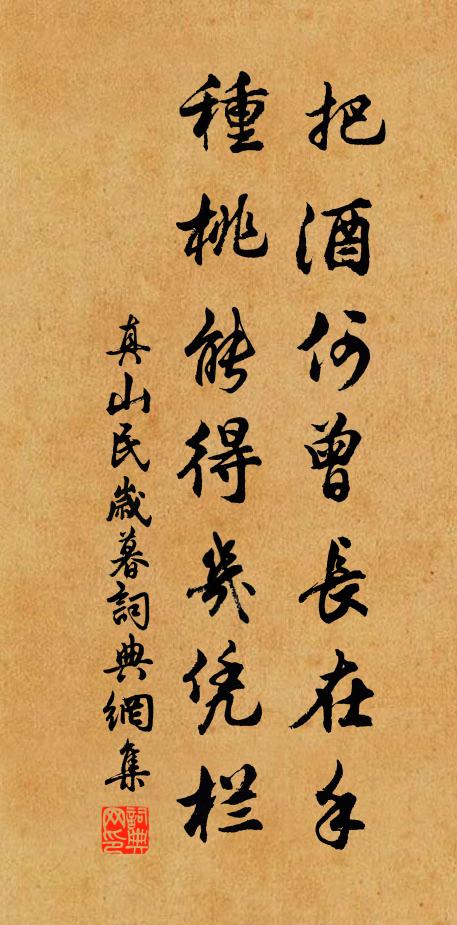 把酒何曾長在手
種桃能得幾凭栏
真山民歲暮詞典網集
詞典网印